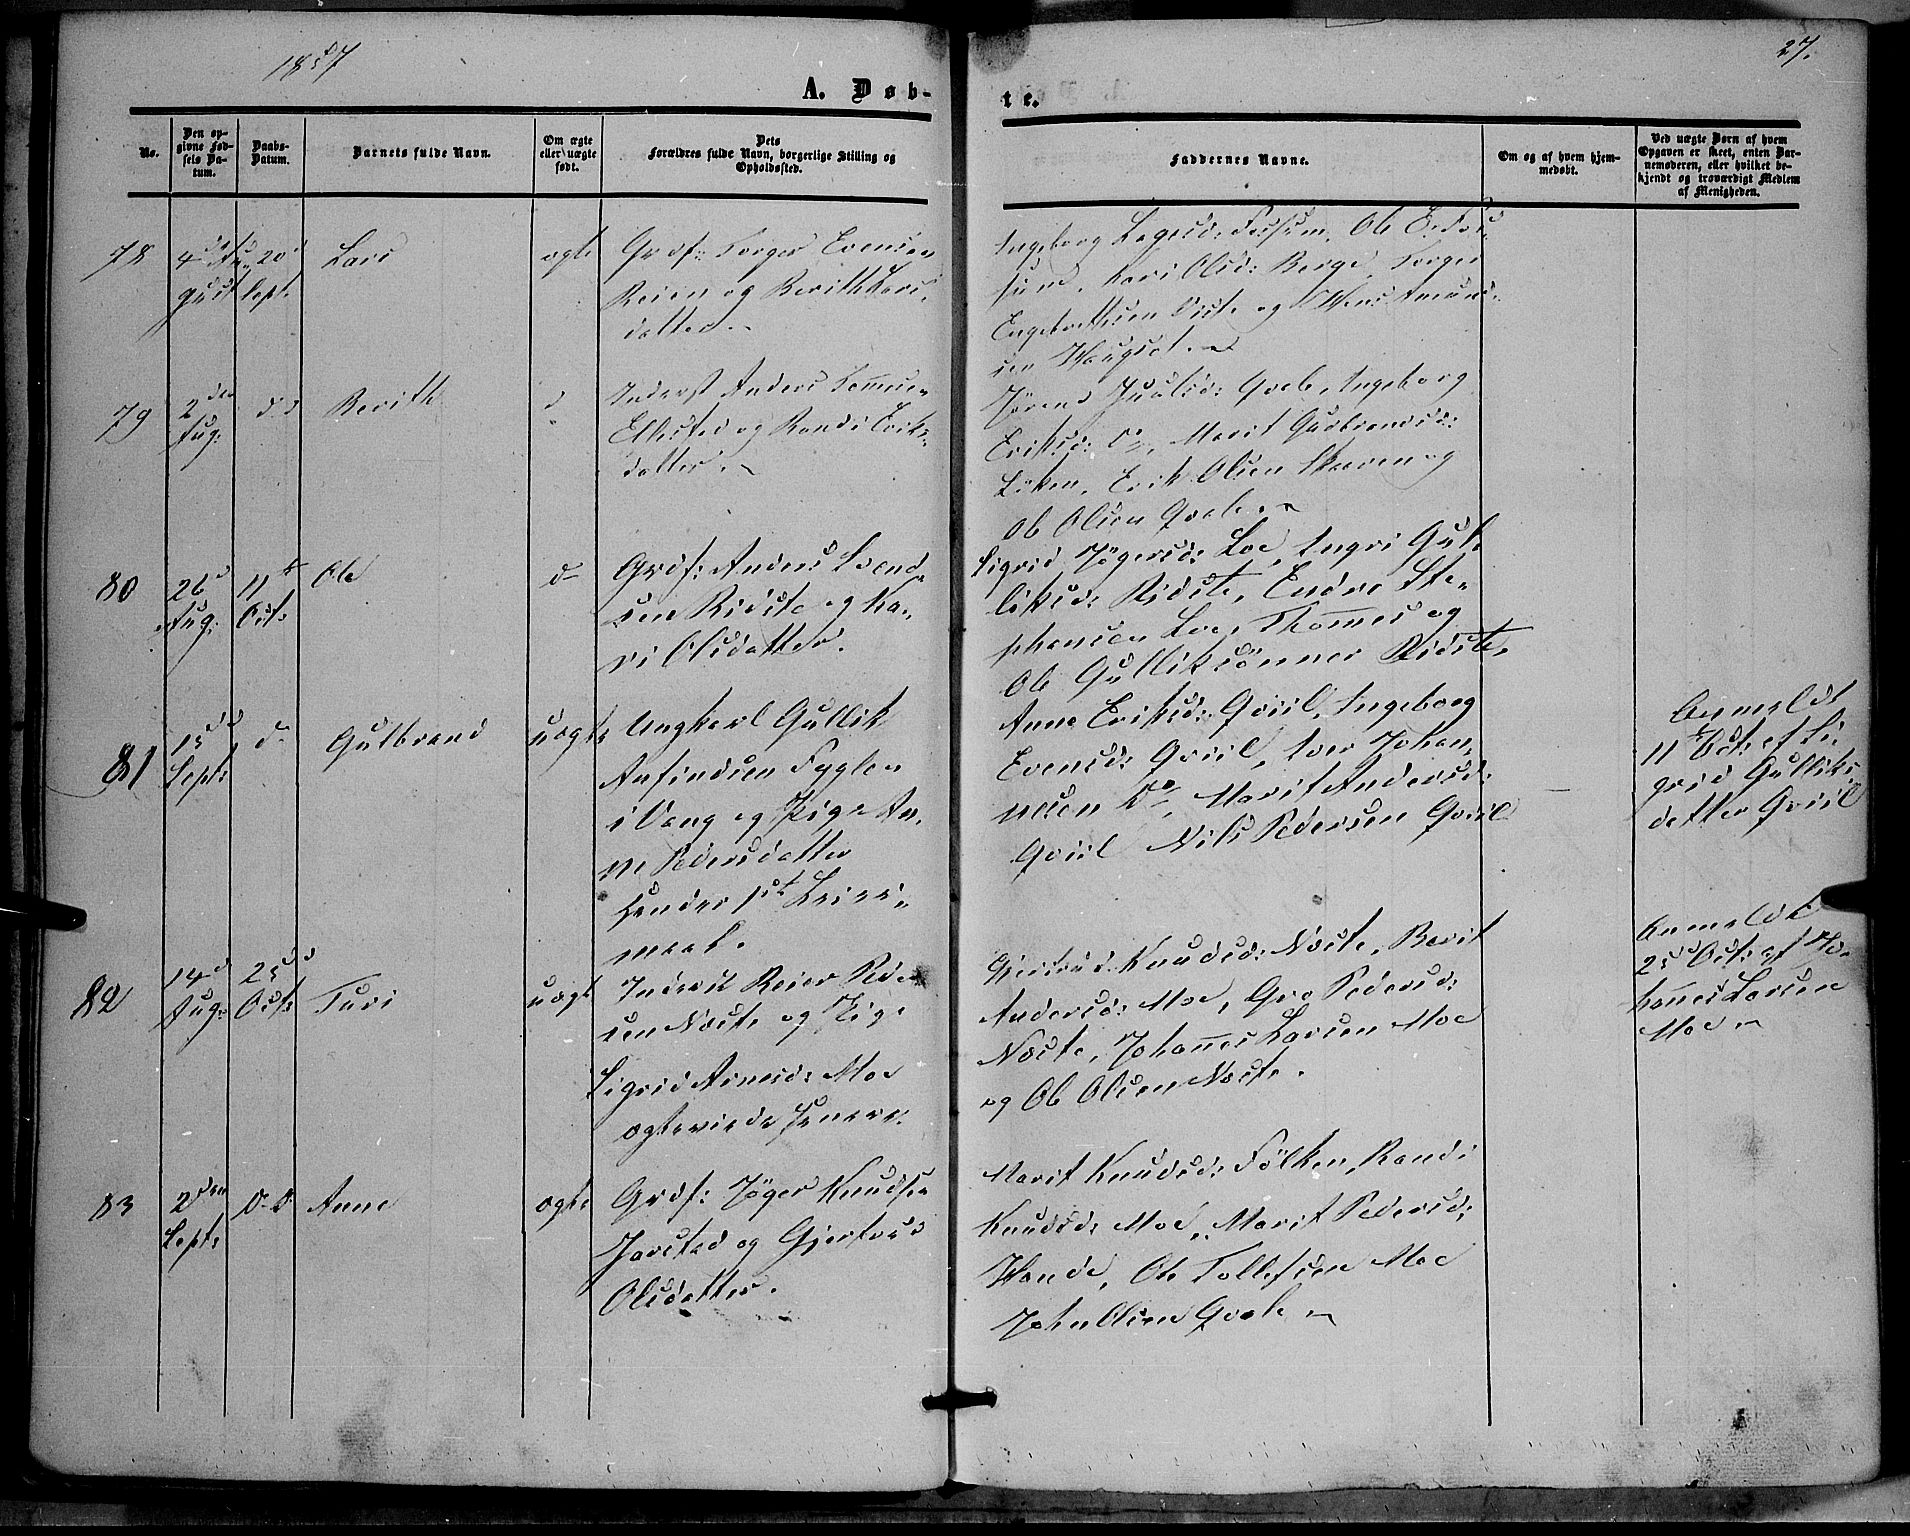 1857
27.
A. Døb-
te.
No.
Den op-
givne Fød-
sels Da-
tum.
Daabs-
Datum.
Barnets fulde Navn.
Om ægte
eller uægte
født.
Dets
Forældres fulde Navn, borgerlige Stilling og
Opholdssted.
Faddernes Navne.
Om og af hvem hjem-
medøbt.
Ved uægte Børn af hvem
Opgaven er skeet, enten Bar-
nemoderen, eller hvilket be-
kjendt og troværdigt Medlem
af Menigheden.
78
4de Au-
gust
20d
Sept.
Lars
ægte
Grdf: Torger Evensen
Reien og Berith Lars-
datter.
Ingeborg
Ole
Kari Olsd: Berge, Torger
Engebrethsen Viste og
sen Haugset.
79
2den
Aug:
d. d
Berith
d
Inderst Anders
Ellestad og Randi Eriks-
datter.
Jørend Juulsd: Qvale, Ingeborg
Eriksd: Do, Marit Gulbrandsd:
Løken, Erik Olsen Skraven og
Ole Olsen Qvale.
80
26d
Aug:
11te
Oct:
Ole
d
Grdf: Anders Svend-
sen Ridste og Ka-
ri Olsdatter.
Sigrid Jøgersd: Loe, Ingri Gul-
liksd: Ridste, Endre Ste-
phensen Loe, Thomes og
Ole Gulliksønner Ridste
81
15d
Sept:
d
Gulbrand
uægte
Ungkarl Gullik
Anfindsen Fyglen
i Vang og Pige An-
ne Pedersdatter
hendes
maal.
Anne Eriksd: Qviil, Ingeborg
Evensd: Qviil, Iver Johan-
nesen Do, Marit Andersd:
Qviil Nils Pedersen Qviil
Anmeldt
11te Oct: af Si-
grid Gulliks-
datter Qviil
82
14d
Aug:
25d
Oct:
Turi
uægte
Inderst Reier Peder-
sen Næste og Pige
Sigrid Arnesd: Moe
ægteviede senere.
Gjertrud Knudsd: Næste, Berit
Andersd: Moe, Gro Pedersd:
Næste, Johannes Larsen Moe
og Ole Olsen Næste.
Anmeldt
25d Oct: af Jo-
hannes Larsen
Moe
83
2den
Sept:
D. D.
Anne
ægte
Grdf: Jøger Knudsen
Jarstad og Gjertrud
Olsdatter.
Marit Knudsd: Følken, Randi
Knudsd: Moe, Marit Pedersd:
Hande, Ole Tollefsen Moe
John Olsen Qvale